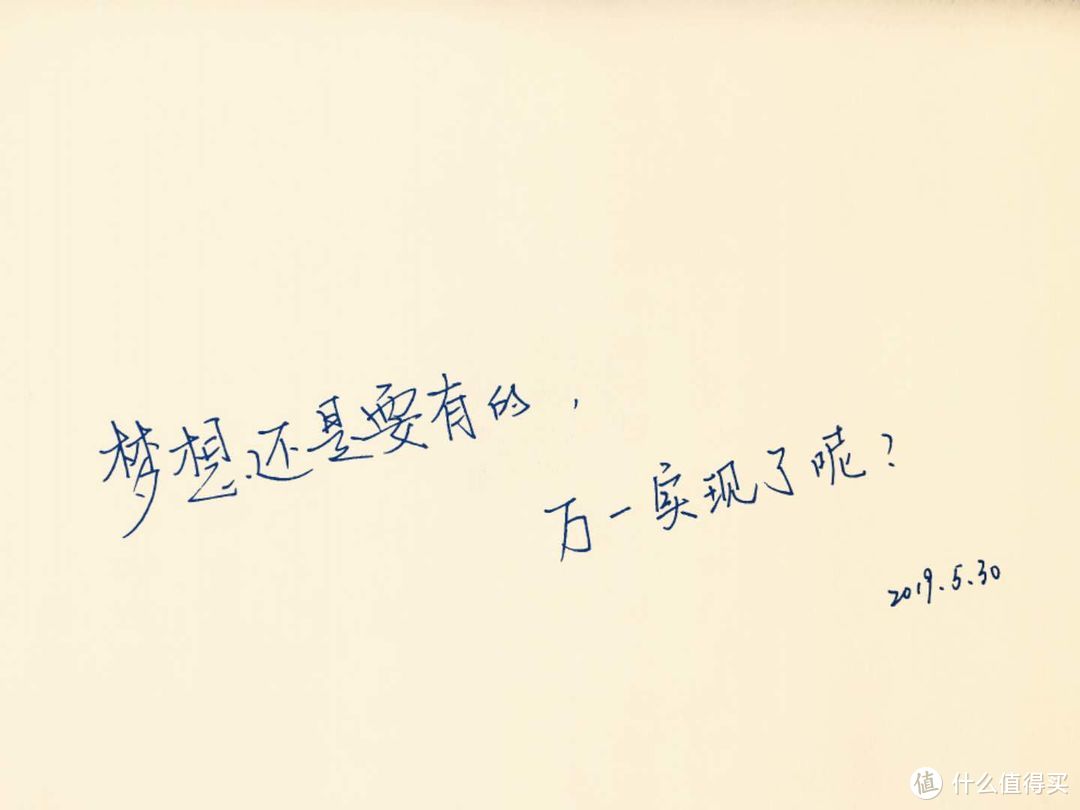 梦想还是要有的，
万一实现了呢？
2019.5.30
值 什么值得买